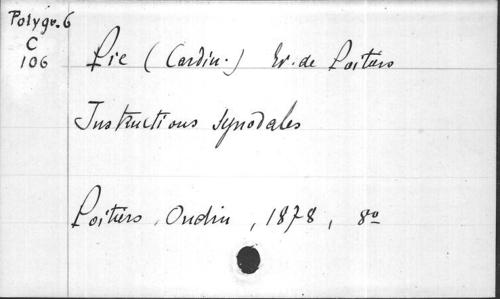 Polygr. 6
C
106
Pie (Cardin.) Ev. de Poitiers
Instructions synodales
Poitiers, Oudin, 1878, 8º